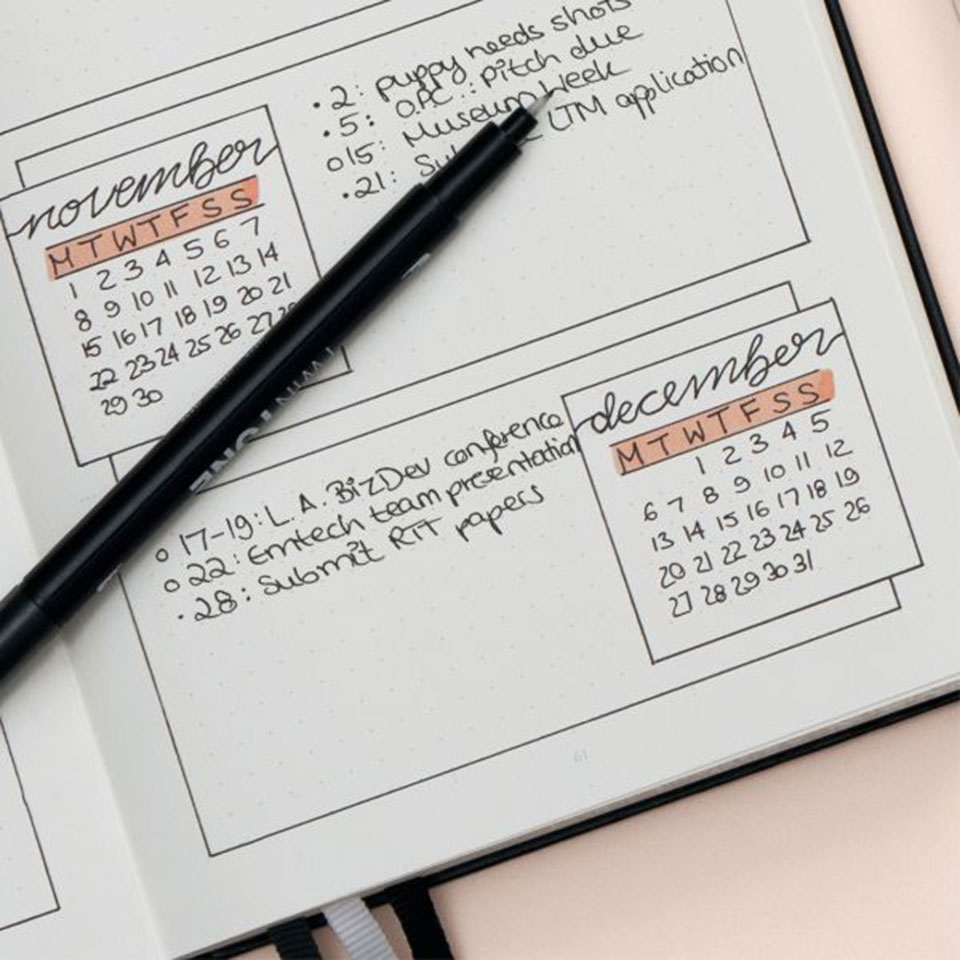 november
M T W T F S S
1 2 3 4 5 6 7
8 9 10 11 12 13 14
15 16 17 18 19 20 21
22 23 24 25 26 27 28
29 30
. 2: puppy needs shots
. 5: O.P.C.: pitch due
o 15: Museum Week
. 21: LTM application
december
M T W T F S S
1 2 3 4 5
6 7 8 9 10 11 12
13 14 15 16 17 18 19
20 21 22 23 24 25 26
27 28 29 30 31
o 17-19: L.A. BizDev conference
o 22: Emtech team presentation
. 28: Submit RIT papers
61